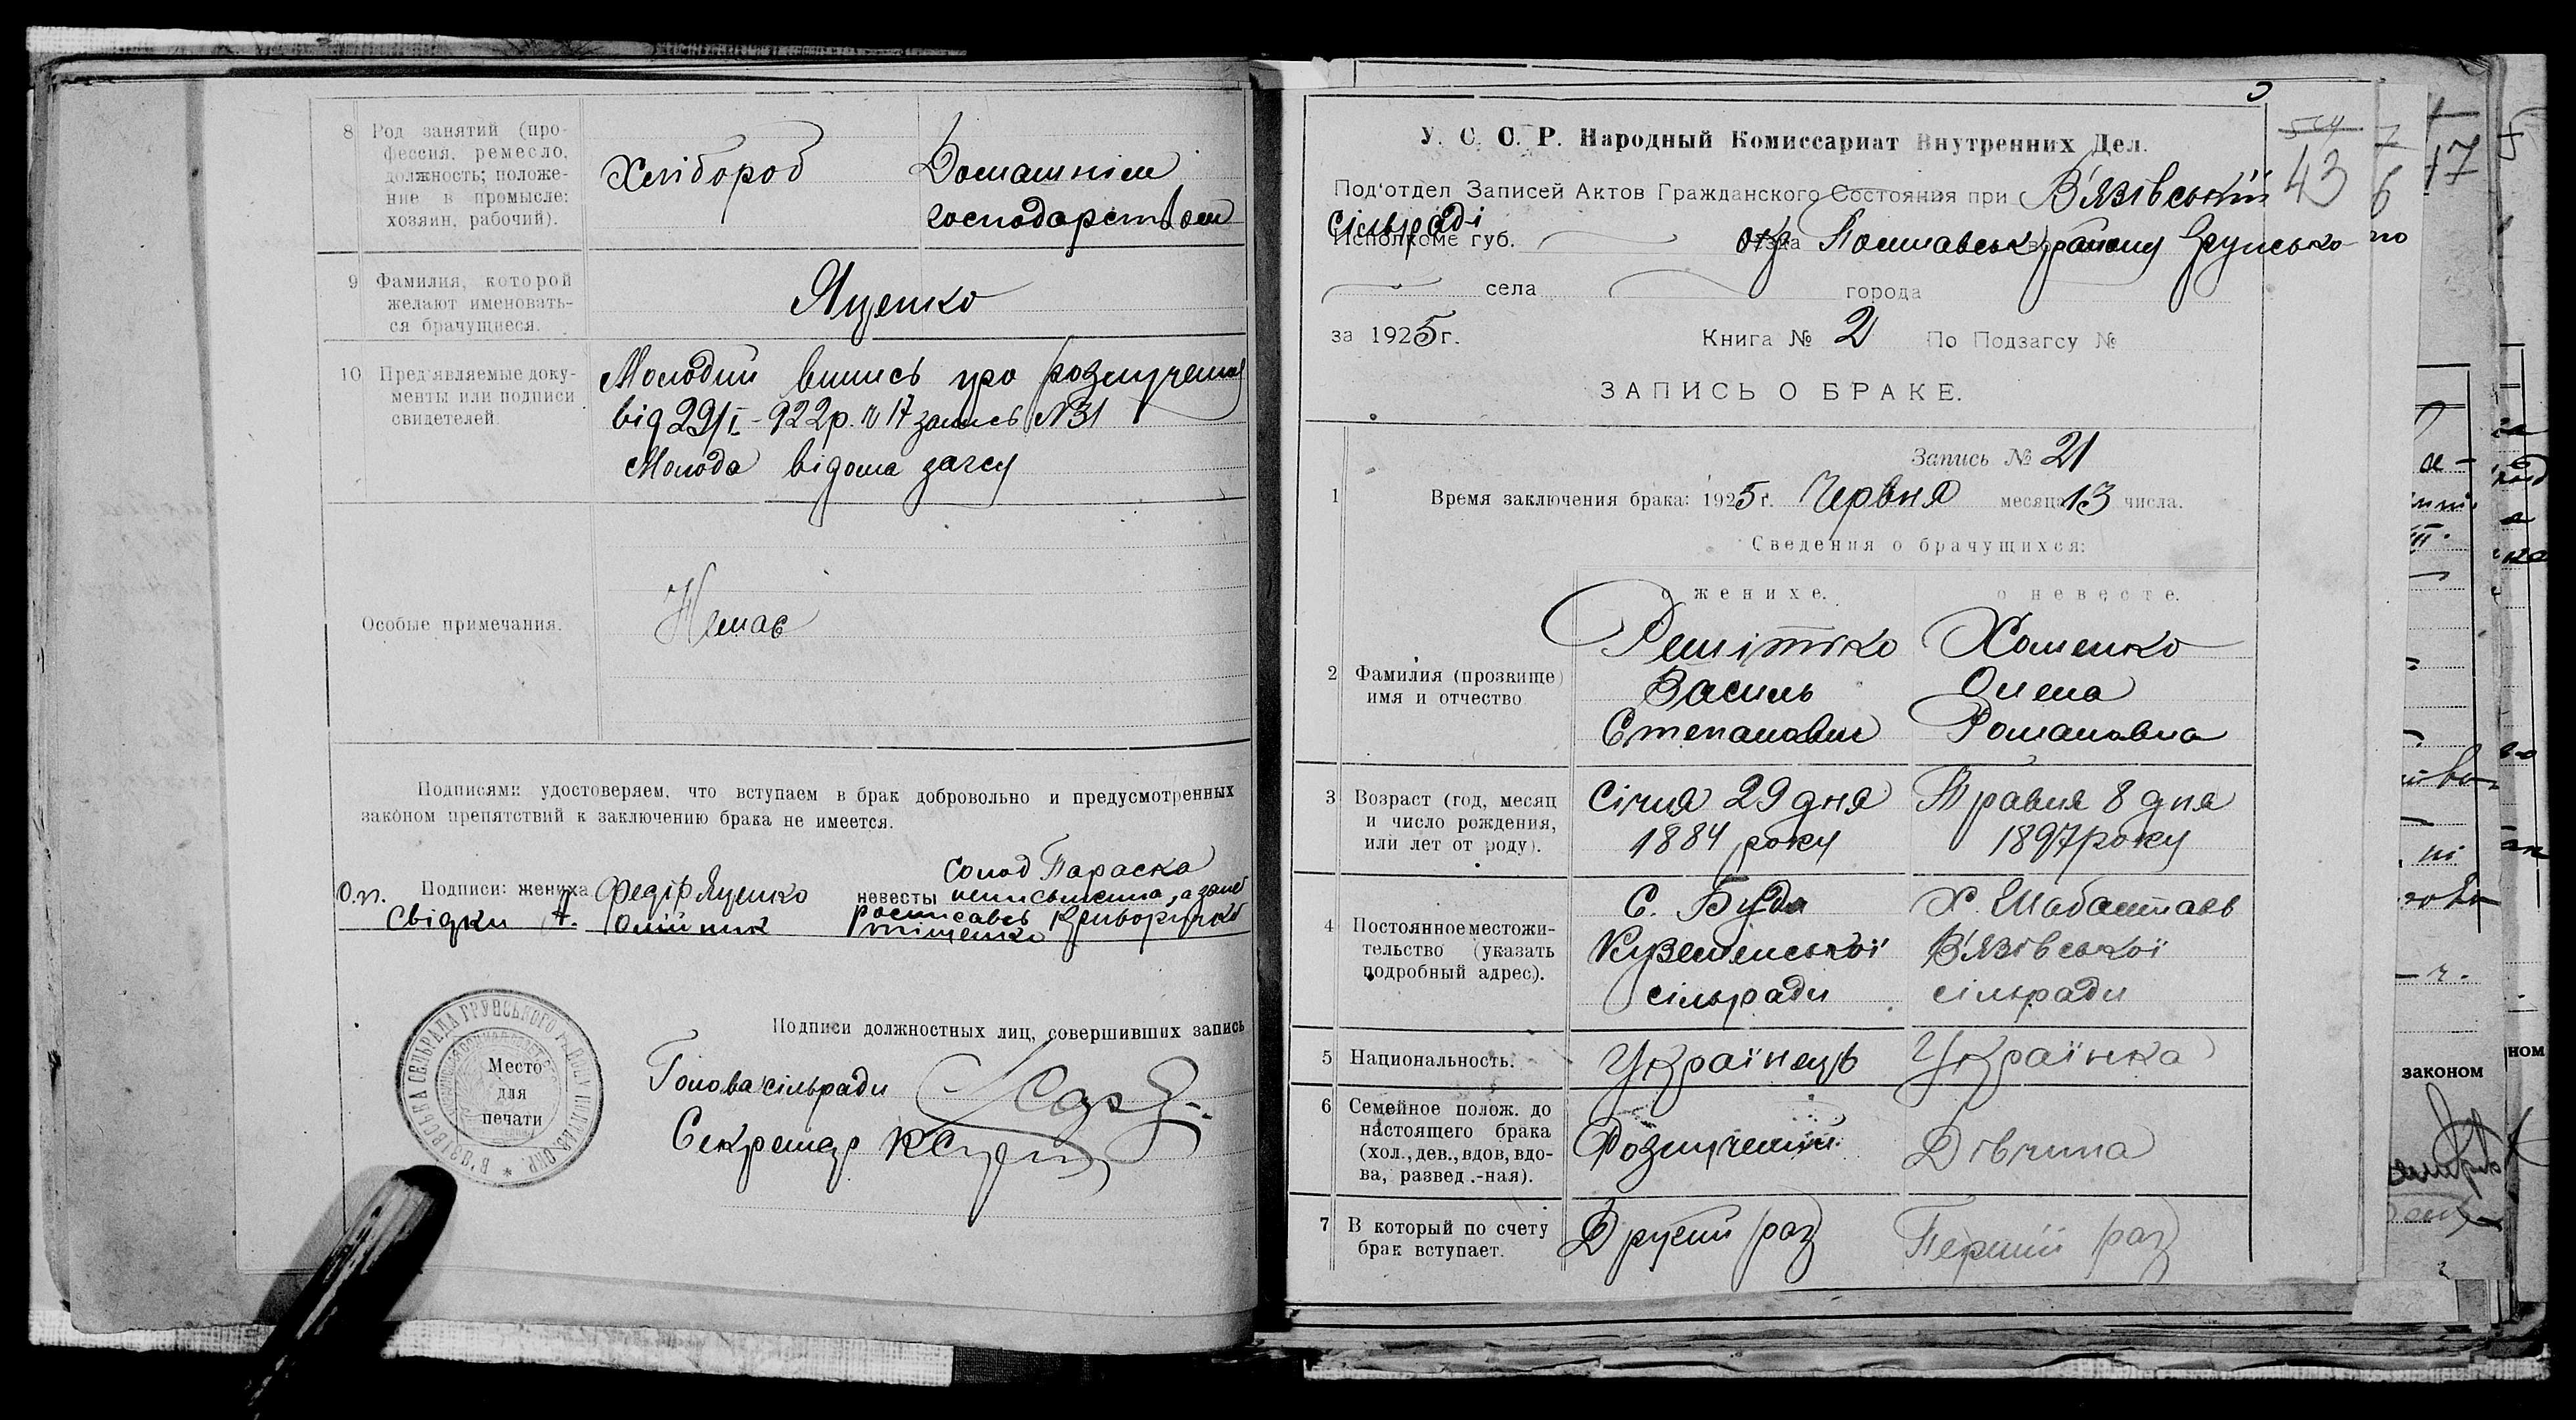 8 Род занятий (про-
фессия, ремесло,
должность; положе-
ние в промысле:
хозяин, рабочий).
Хлібороб
Домашнім
господарством
9 Фамилия, которой
желают именовать-
ся брачущиеся.
Яценко
10 Пред'являемые доку-
менты или подписи
свидетелей.
Молодий випись про розлучення
від 29/I-922р. ч 17 запись №31
Молода відома загсу
Особые примечания.
Немає
Подписями удостоверяем, что вступаем в брак добровольно и предусмотренных
законом препятствий к заключению брака не имеется.
О.п. Подписи: жениха Федір Яценко
Свідки А. Олійник
Солод Параска
невесты неписьменна, а за неї
росписавсь Криворучко
Тищенко
В'ЯЗІВСЬКА СЕЛЬРАДА ГРУНСЬКОГО Р.
Место
для
печати
Подписи должностных лиц, совершивших запись
Голова сільради
Секретар
У. С. С. Р. Народный Комиссариат Внутренних Дел.
Под'отдел Записей Актов Гражданского Состояния при В'язівській
сільраді
Исполкоме губ. окр Полтавськ району Грунсько-
села города
за 1925 г. Книга № 2 По Подзагсу №
43
6
17
ЗАПИСЬ О БРАКЕ.
Запись № 21
1 Время заключения брака: 1925 г. Червня месяца 13 числа.
Сведения о брачущихся:
о женихе. о невесте.
2 Фамилия (прозвище)
имя и отчество
Решітько
Василь
Степанович
Хоменко
Олена
Романовна
3 Возраст (год, месяц
и число рождения,
или лет от роду).
Січня 29 дня
1884 року
Травня 8 дня
1897 року
4 Постоянное местожи-
тельство (указать
подробный адрес).
С. Буди
Куземенської
сільради
Х. Шабалтаєв
В'язівської
сільради
5 Национальность.
Українець
Українка
6 Семейное полож. до
настоящего брака
(хол., дев., вдов, вдо-
ва, развед.-ная).
Розлучений
Дівчина
7 В который по счету
брак вступает.
Другий раз
Перший раз
законом
ном